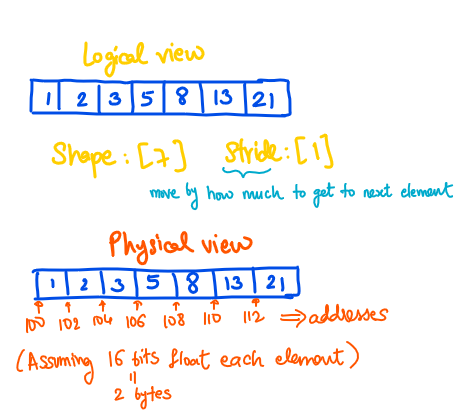 Logical view
1 2 3 5 8 13 21
Shape : [7] Stride : [1]
move by how much to get to next element
Physical view
1 2 3 5 8 13 21
100 102 104 106 108 110 112 ⇒ addresses
(Assuming 16 bits float each element)
=
2 bytes